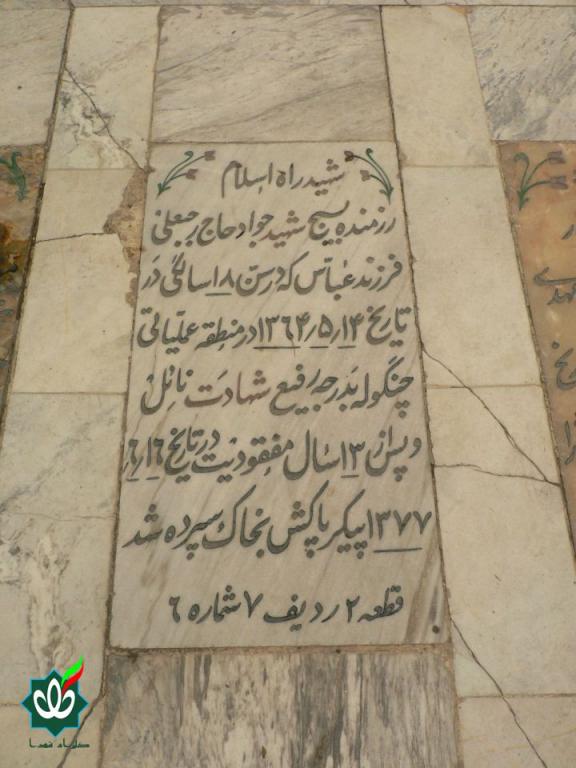 شهید راه اسلام
رزمنده بسیج شهید جواد حاج رجبعلی
فرزند عباس که در سن ۱۸ سالگی در
تاریخ ۱۳۶۴٫۵٫۱۴ در منطقه عملیاتی
چنگوله بدرجه رفیع شهادت نائل
و پس از ۱۳ سال مفقودیت در تاریخ ۱۶٫۶٫
۱۳۷۷ پیکر پاکش بخاک سپرده شد
قطعه ۲ ردیف ۷ شماره ۶